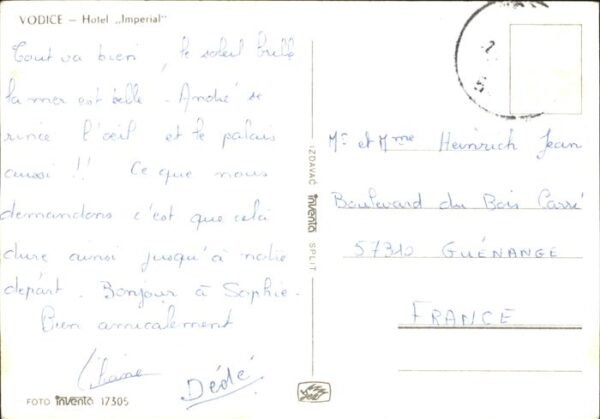 VODICE — Hotel „Imperial"
Tout va bien, le soleil brille
la mer est belle. André se
rince l'oeil et le palais
aussi !! Ce que nous
demandons c'est que cela
dure ainsi jusqu'à notre
départ. Bonjour à Sophie.
Bien amicalement
Liliane
Dédé
FOTO inventa 17305
IZDAVAČ inventa SPLIT
Mr et Mme Heinrich Jean
Boulevard du Bois Carré
57310 GUÉNANGE
FRANCE